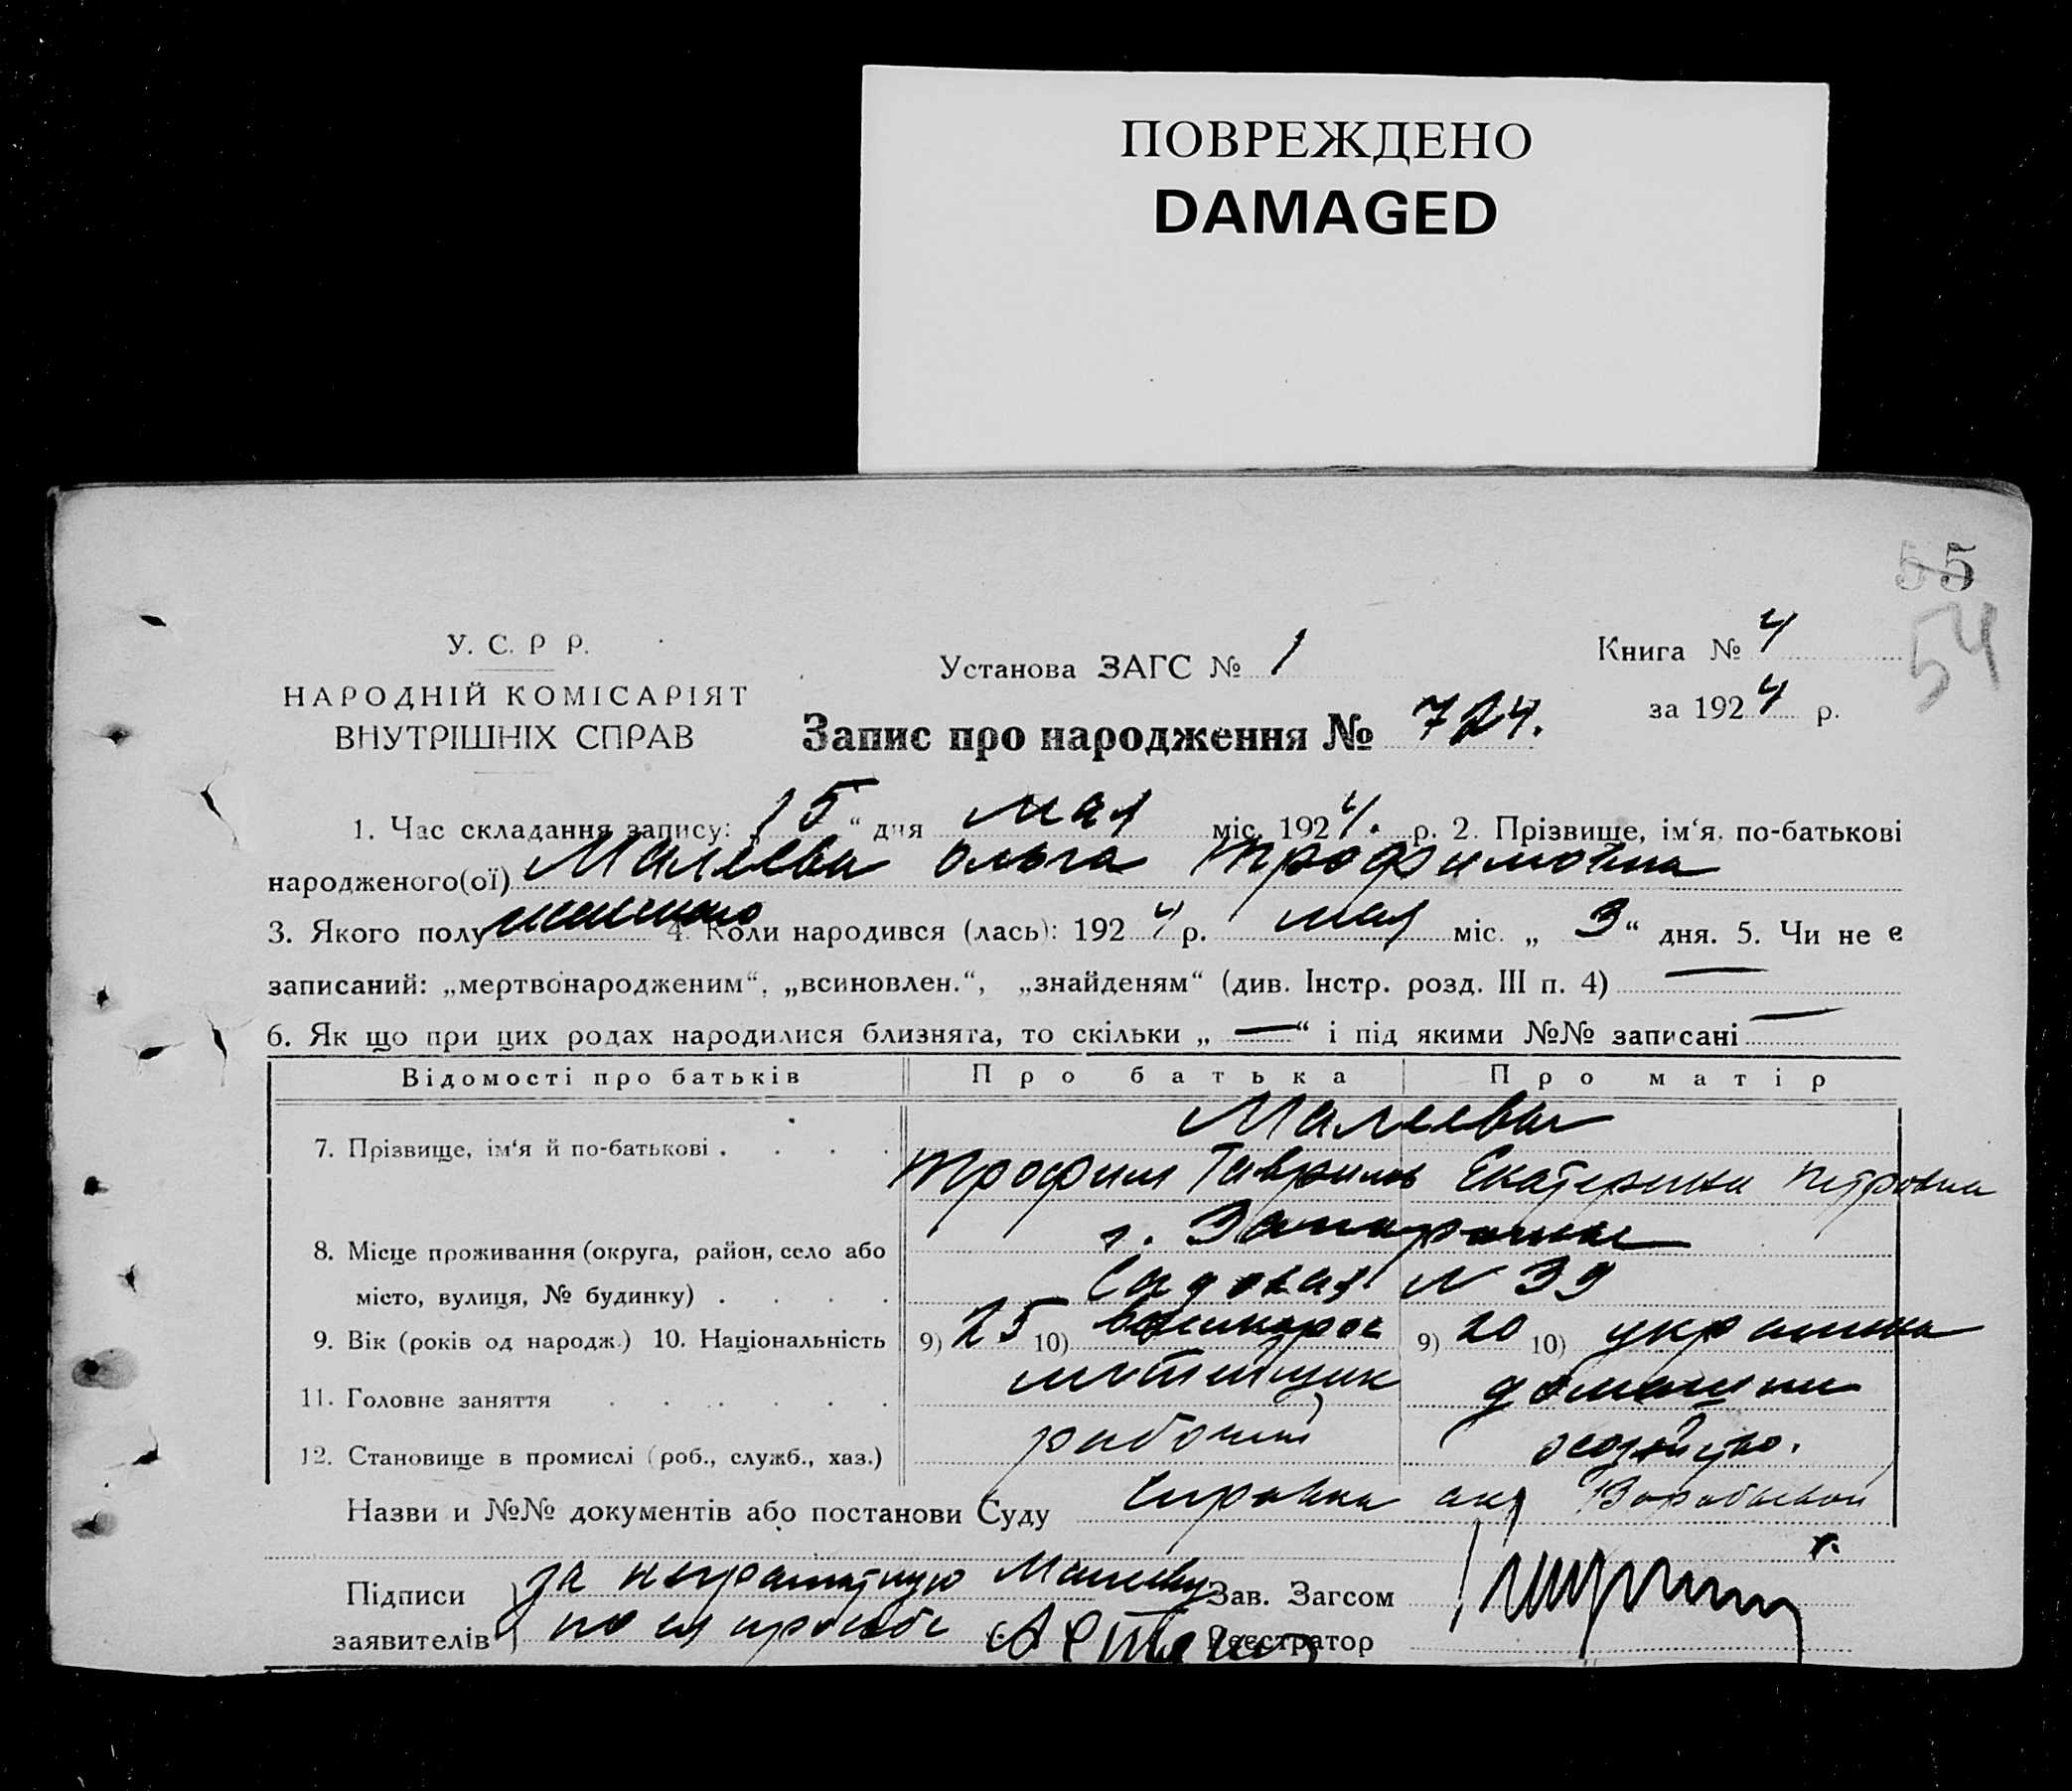 ПОВРЕЖДЕНО
DAMAGED
55
54
У. С. Р Р.
НАРОДНІЙ КОМІСАРІЯТ
ВНУТРІШНІХ СПРАВ
Установа ЗАГС № 1
Книга № 4
за 1924 р.
Запис про народження № 724.
1. Час складання запису: „15“ дня мая міс. 1924. р. 2. Прізвище, ім‘я, по-батькові
народженого(ої) Малеева Ольга Трофимовна
3. Якого полу женского 4. Коли народився (лась): 1924 р. мая міс. „3“ дня. 5. Чи не є
записаний: „мертвонародженим“, „всиновлен.“, „знайденям“ (див. Інстр. розд. III п. 4) —
6. Як що при цих родах народилися близнята, то скільки „—“ і під якими №№ записані —
Відомості про батьків Про батька Про матір
7. Прізвище, ім‘я й по-батькові . . . . Малеевы
Трофим Гаврилов Екатерина Петровна
8. Місце проживання (округа, район, село або г. Запорожье
місто, вулиця, № будинку) . . . . Садовая N 39
9. Вік (років од народж.) 10. Національність 9) 25 10) 9) 20 10) украинка
11. Головне заняття . . . . . . домашнее
12. Становище в промислі (роб., служб., хаз.) рабочий хозяйство.
Назви и №№ документів або постанови Суду Справка ак. Воробьевой
Підписи за неграмотную Малееву Зав. Загсом
заявителів по ея просьбе Реєстратор